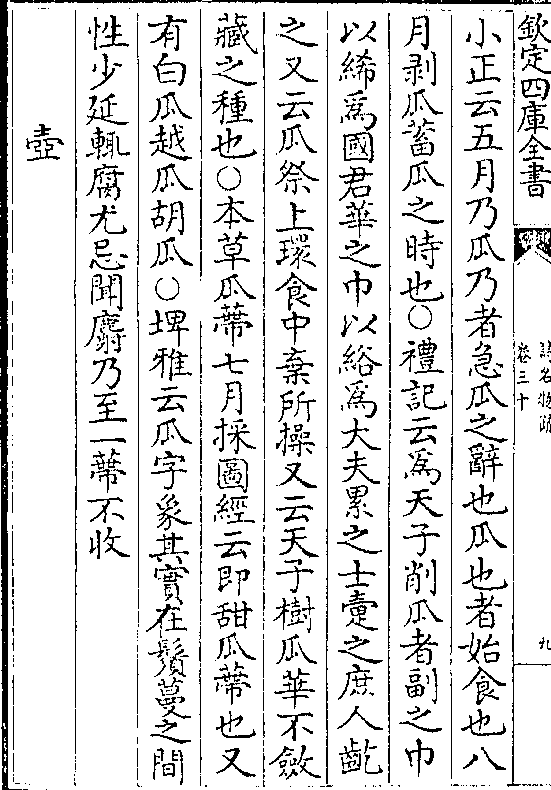 欽定四庫全書
詩名物疏
卷三十
九
小正云五月乃瓜乃者急瓜之辭也瓜也者始食也八
月剥瓜蓄瓜之時也○禮記云爲天子削瓜者副之巾
以絺爲國君華之巾以綌爲大夫累之士疐之庶人齕
之又云瓜祭上環食中棄所操又云天子樹瓜華不斂
藏之種也○本草瓜蔕七月採圖經云即甜瓜蔕也又
有白瓜越瓜胡瓜○埤雅云瓜字象其實在鬚蔓之間
性少延輒腐尤忌聞麝乃至一蔕不收
壺